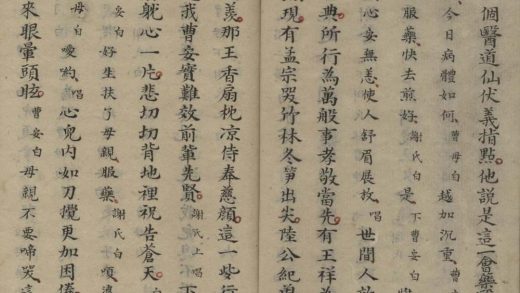 個醫道仙伏義指點他說是這一會藥
今日病體如何 曹母白 越加沉重 曹
服藥快去煎好 謝氏白 是 下 曹安白
心安無恙使人舒眉展放 唱 世間人
典所行為萬般事孝敬當先有王祥
現有孟宗哭竹林冬笋出尖陸公紀
羨那王香扇枕凉侍奉慈顏這一些行
我曹安實難效前輩先賢 謝氏上唱
躭心一片悲切切背地裡祝告蒼天
安白 好生扶了母親服藥 謝氏白
母白 唉喲 唱 心兒內如刀攪更加困倦
來眼暈頭眩 曹安白 母親不要啼哭這